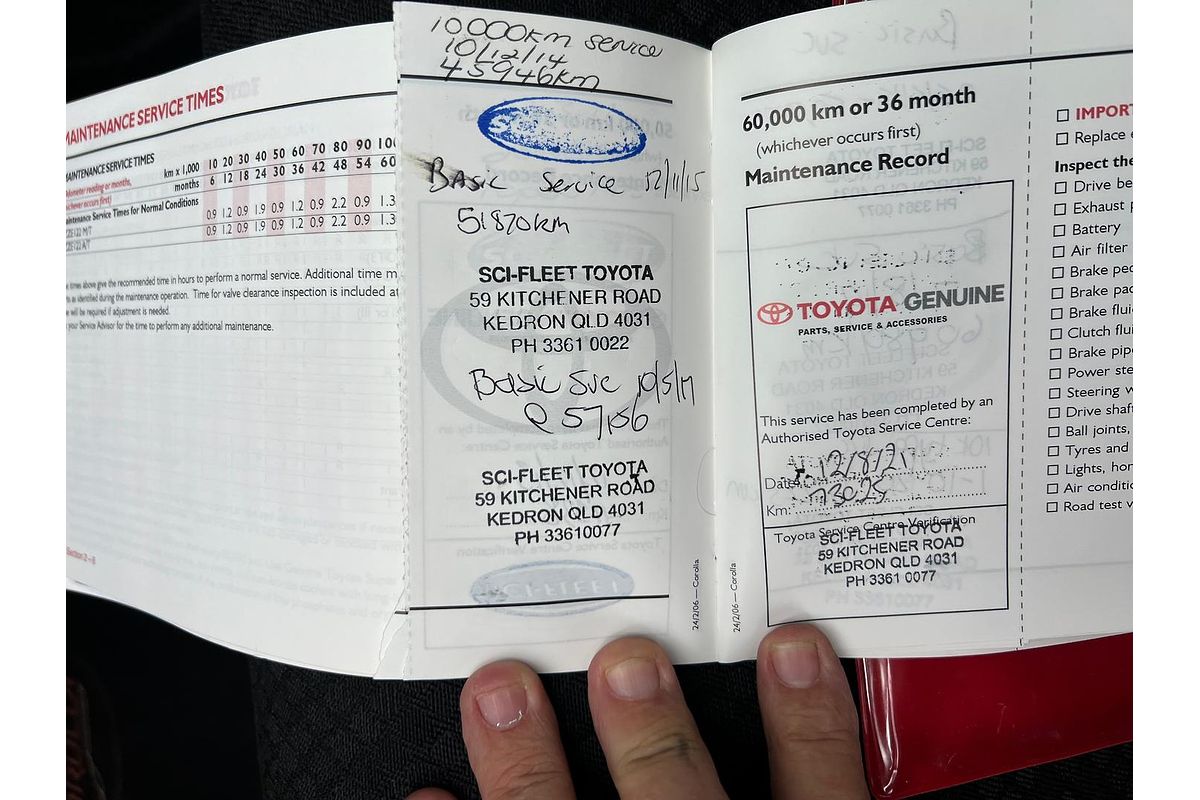 MAINTENANCE SERVICE TIMES
MAINTENANCE SERVICE TIMES
km x 1,000 10 20 30 40 50 60 70 80 90 100
months 6 12 18 24 30 36 42 48 54 60
Maintenance Service Times for Normal Conditions
0.9 1.2 0.9 1.9 0.9 1.2 0.9 2.2 0.9 1.3
0.9 1.2 0.9 1.9 0.9 1.2 0.9 2.2 0.9 1.3
times above give the recommended time in hours to perform a normal service. Additional time m
as identified during the maintenance operation. Time for valve clearance inspection is included at
will be required if adjustment is needed.
your Service Advisor for the time to perform any additional maintenance.
10,000km service
10/12/14
45946km
Basic Service 12/11/15
51820km
SCI-FLEET TOYOTA
59 KITCHENER ROAD
KEDRON QLD 4031
PH 3361 0022
Basic Svc 10/5/17
@ 57,156
SCI-FLEET TOYOTA
59 KITCHENER ROAD
KEDRON QLD 4031
PH 33610077
SCI-FLEET
24/2/06 — Corolla
24/2/06 — Corolla
60,000 km or 36 month
(whichever occurs first)
Maintenance Record
TOYOTA GENUINE
PARTS, SERVICE & ACCESSORIES
This service has been completed by an
Authorised Toyota Service Centre:
Date: 12/8/21
Km: 73025
Toyota Service Centre Verification
SCI-FLEET TOYOTA
59 KITCHENER ROAD
KEDRON QLD 4031
PH 3361 0077
IMPORT
Replace e
Inspect the
Drive be
Exhaust p
Battery
Air filter
Brake ped
Brake pad
Brake flui
Clutch flui
Brake pipe
Power ste
Steering w
Drive shaf
Ball joints,
Tyres and
Lights, hor
Air conditic
Road test v